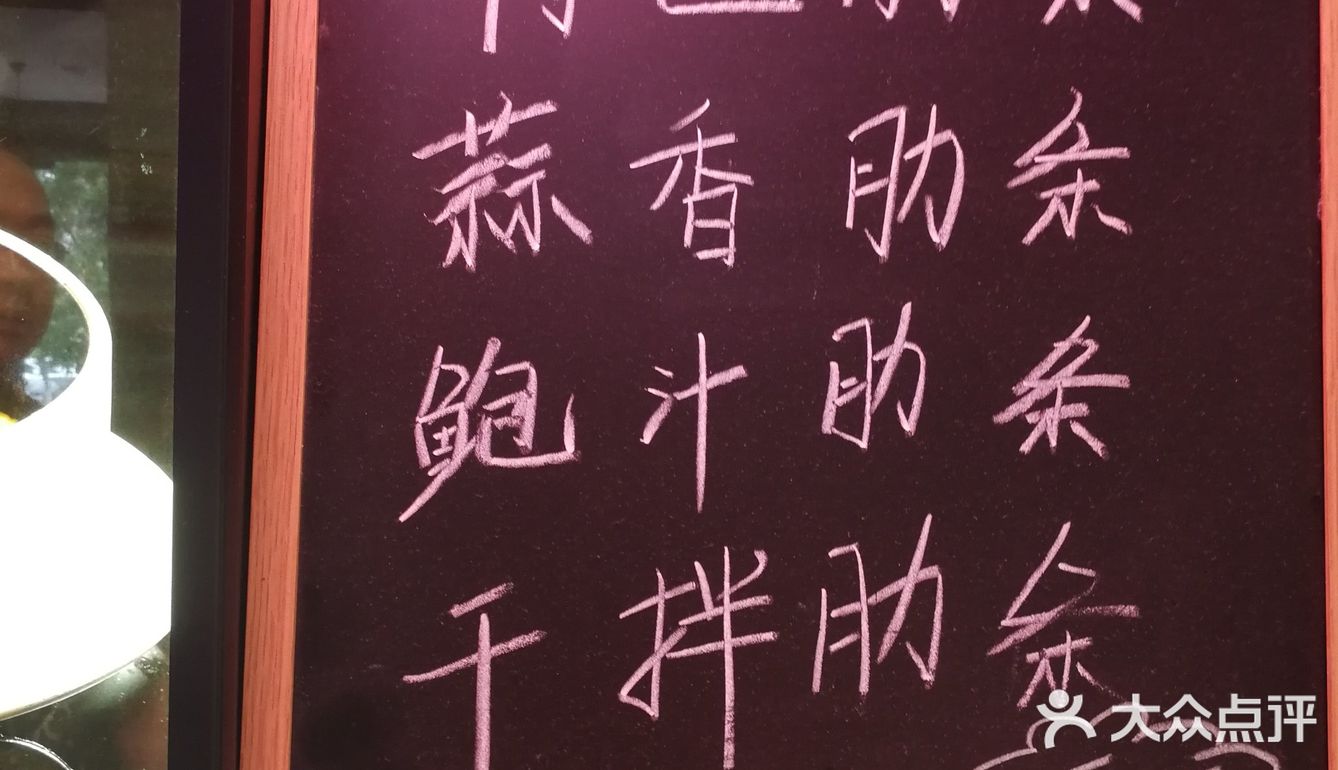 蒜香肋条
鲍汁肋条
干拌肋条
大众点评